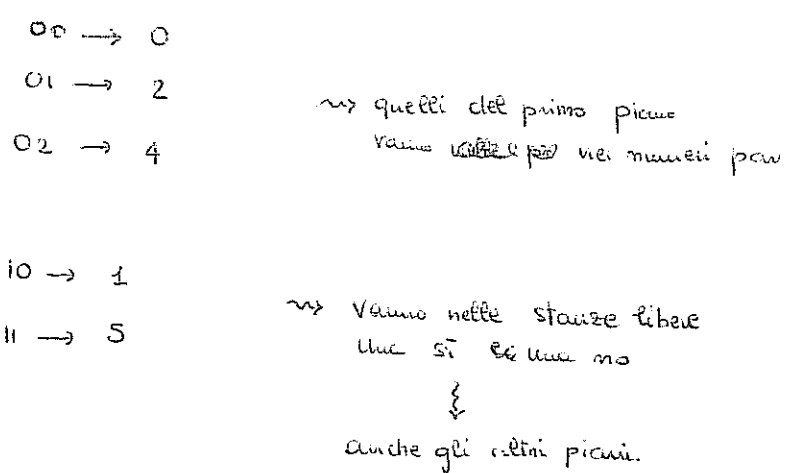 00 → 0
01 → 2
02 → 4
⤳ quelli del primo piano
vanno nei numeri pari
10 → 1
11 → 5
⤳ vanno nelle stanze libere
una sì e una no
anche gli altri piani.